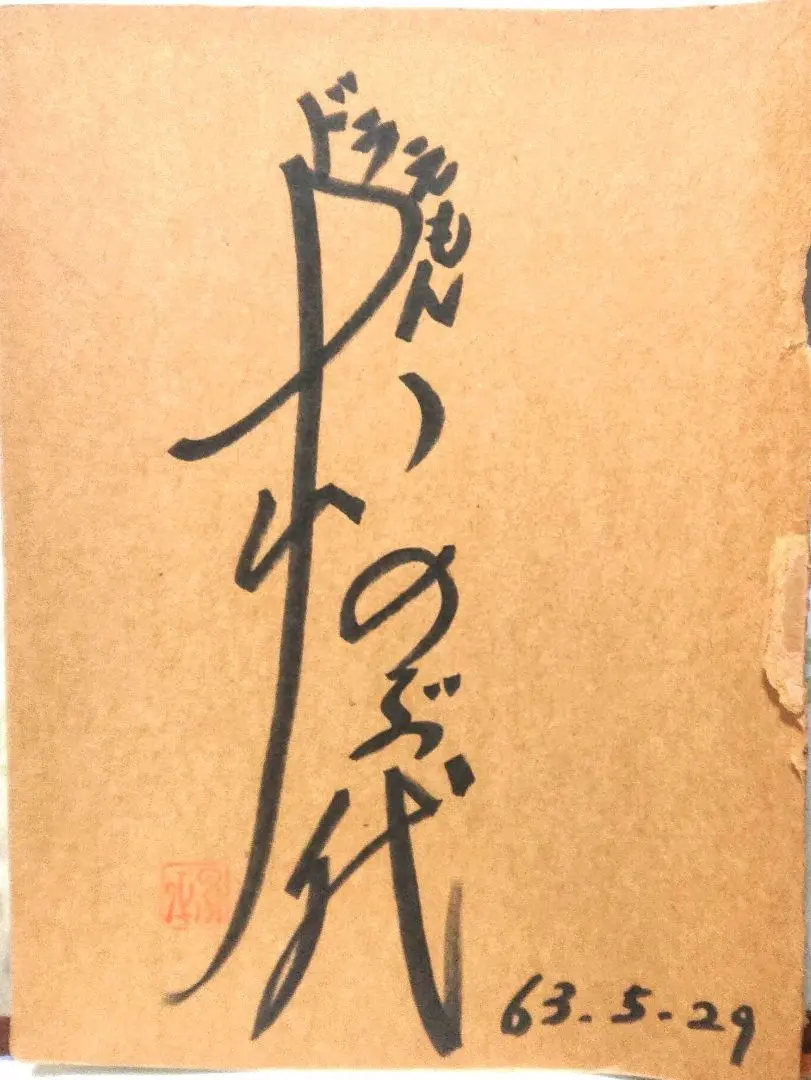 ドラえもん
大山のぶ代
63.5.29